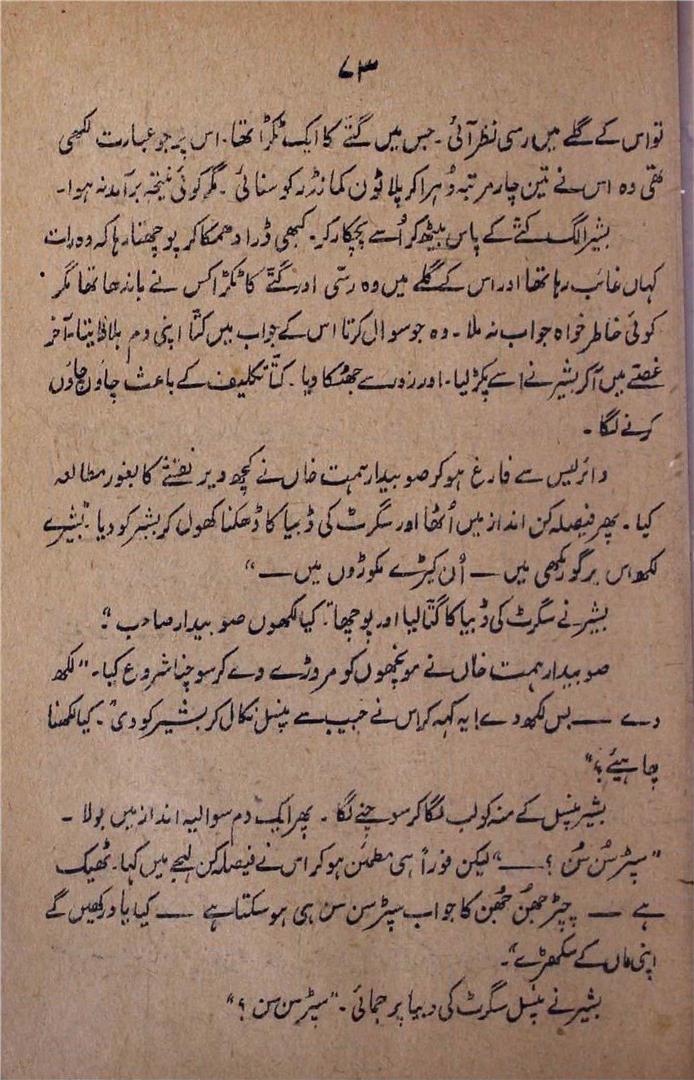 ۷۳
تو اس کے گلے میں رسی نظر آئی۔ جس میں گتّے کا ایک ٹکڑا تھا۔ اس پر جو عبارت لکھی
تھی وہ اس نے تین چار مرتبہ دُہرا کر پلاٹون کمانڈر کو سنائی۔ مگر کوئی نتیجہ برآمد نہ ہوا۔
بشیر الگ کتّے کے پاس بیٹھ کر اُسے پچکار کر۔ کبھی ڈرا دھمکا کر پوچھتا رہا کہ وہ رات
کہاں غائب رہا تھا اور اس کے گلے میں وہ رسّی اور گتّے کا ٹکڑا کس نے باندھا تھا مگر
کوئی خاطر خواہ جواب نہ ملا۔ وہ جو سوال کرتا اس کے جواب میں کتّا اپنی دم ہلا دیتا۔ آخر
غصّے میں آکر بشیر نے اسے پکڑ لیا۔ اور زور سے جھٹکا دیا۔ کتّا تکلیف کے باعث چاؤں چاؤں
کرنے لگا۔
وائرلیس سے فارغ ہو کر صوبیدار ہمت خاں نے کچھ دیر نقشے کا بغور مطالعہ
کیا۔ پھر فیصلہ کن انداز میں اُٹھا اور سگرٹ کی ڈبیا کا ڈھکنا کھول کر بشیر کو دیا۔ "بشیرے
لکھ اس پر گورمکھی میں — اُن کیڑے مکوڑوں میں —"
بشیر نے سگرٹ کی ڈبیا کا گتّا لیا اور پوچھا۔ کیا لکھوں صوبیدار صاحب"۔
صوبیدار ہمت خاں نے مونچھوں کو مروڑے دے کر سوچنا شروع کیا۔ "لکھ
دے — بس لکھ دے! یہ کہہ کر اس نے جیب سے پنسل نکال کر بشیر کو دی"۔ کیا لکھنا
چاہیئے؟"
بشیر پنسل کے منہ کو لب لگا کر سوچنے لگا۔ پھر ایک دم سوالیہ انداز میں بولا۔
"سپڑ سُن سُن؟ —" لیکن فوراً ہی مطمئن ہو کر اس نے فیصلہ کن لہجے میں کہا۔ ٹھیک
ہے — چپڑ جھُن جھُن کا جواب سپڑ سن سن ہی ہو سکتا ہے — کیا یاد رکھیں گے
اپنی ماں کے سکھڑے"۔
بشیر نے پنسل سگرٹ کی ڈبیا پر جمائی۔ "سپڑ سن سن؟"